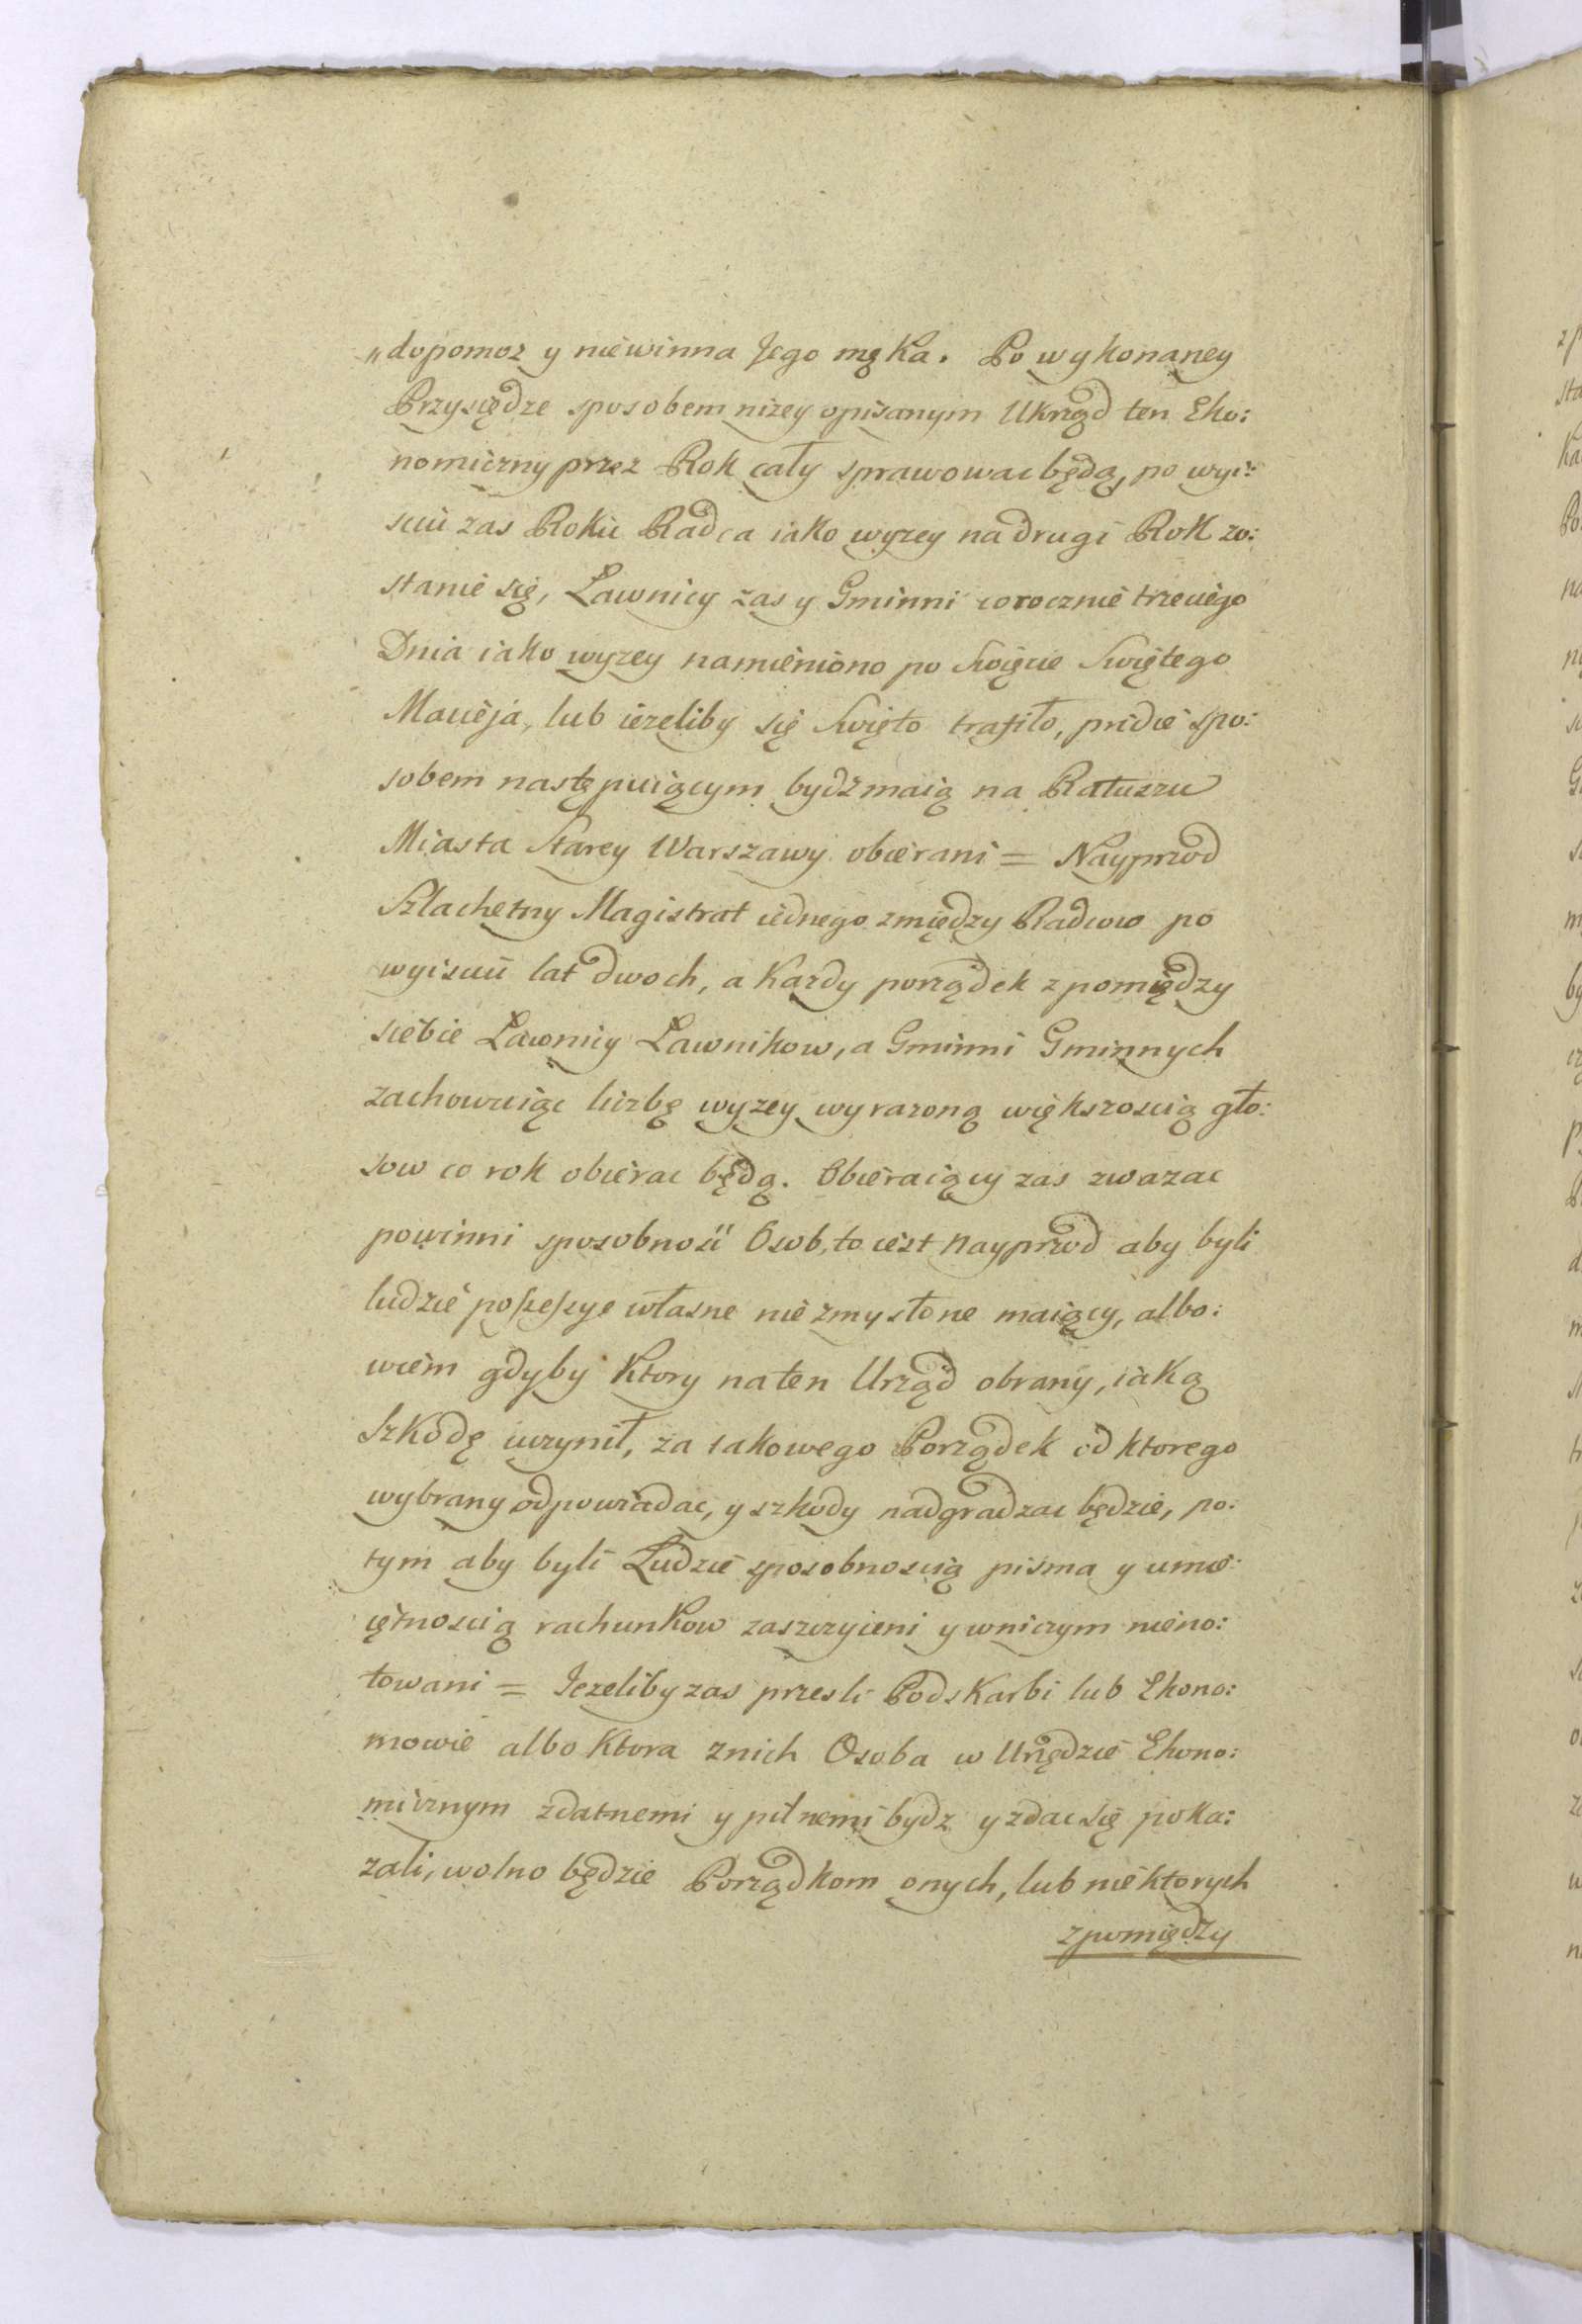 „dopomoz y niewinna Jego męka. Po wykonaney
Przysiędze sposobem nizey opisanym Ukrząd ten Eko:
nomiczny przez Rok cały sprawowac będą, po wyi:
sciu zas Roku Radca iako wyzey na drugi Rok zo:
stanie się, Ławnicy zas y Gminni corocznie trzeciego
Dnia iako wyzey namieniono po Swięcie Swiętego
Macieja, lub iezeliby się Swięto trafiło, pridie spo:
sobem następuiącym bydz maią na Ratuszu
Miasta Starey Warszawy obierani = Nayprzod
Szlachetny Magistrat iednego zmiędzy Radcow po
wyisciu lat dwoch, a Kazdy porządek z pomiędzy
siebie Ławnicy Ławnikow, a Gminni Gminnych
zachowuiąc liczbę wyzey wyrazoną większoscią gło:
sow co rok obierac będą. Obieraiący zas zwazac
powinni sposobnosci Osob, to iest Nayprzod aby byli
ludzie possessye własne nie zmyslone maiący, albo:
wiem gdyby Ktory na ten Urząd obrany, iaką
Szkodę uczynił, za iakowego Porządek od ktorego
wybrany odpowiadac, y szkody nadgradzac będzie, po:
tym aby byli Ludzie sposobnoscią pisma y umie:
iętnoscią rachunkow zaszczyceni y wniczym nieno:
towani = Jezeliby zas przesli Podskarbi lub Ekono:
mowie albo Ktora znich Osoba w Urzędzie Ekono:
micznym zdatnemi y pilnemi bydz y zdac się poka:
zali, wolno będzie Porządkom onych, lub niektorych
zpomiędzy